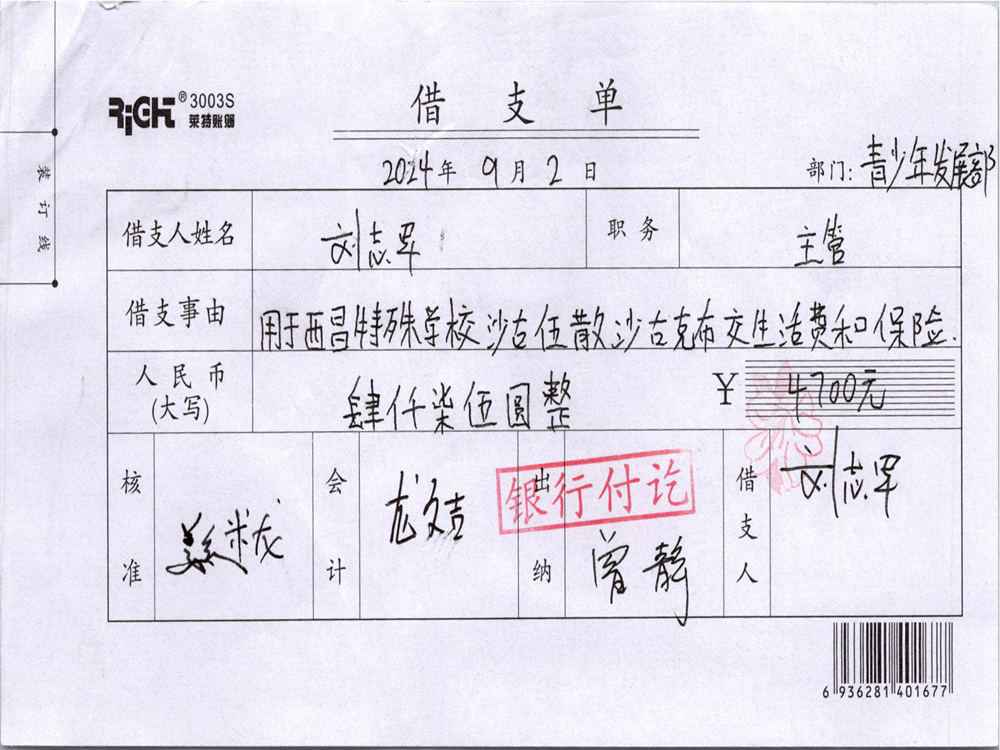 RiGHt® 3003S
莱特账簿
借支单
2014年 9月 2日
部门: 青少年发展部
装订线
借支人姓名 刘志军 职务 主管
借支事由 用于西昌特殊学校沙古伍散沙古克布交生活费和保险.
人民币 (大写) 肆仟柒伍圆整 ¥ 4700元
核准 会计 尤文吉 出纳 曾静 借支人 刘志军
银行付讫
6 936281 401677